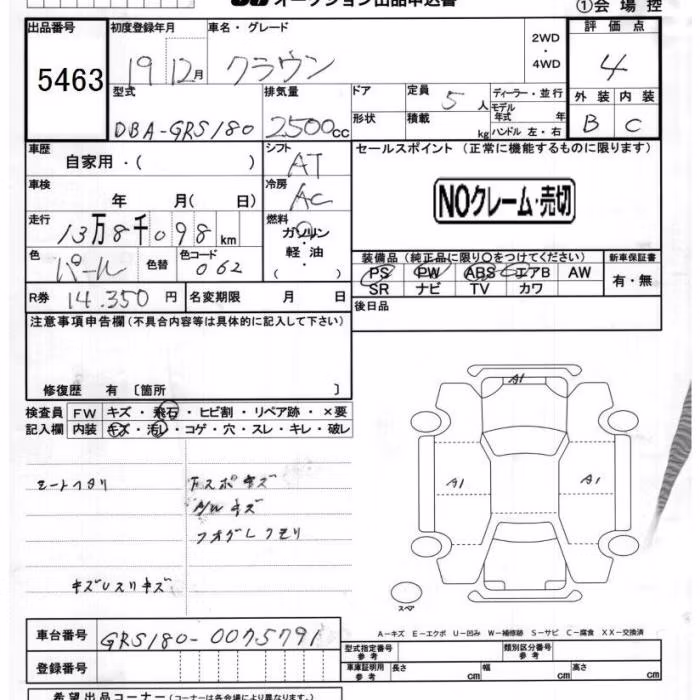 オークション出品申込書
①会場控
出品番号
5463
初度登録年月
19 12月
車名・グレード
クラウン
2WD
・
4WD
評価点
4
外装 内装
B C
型式
DBA-GRS180
排気量
2500cc
ドア
形状
定員
5人
積載
kg
ディーラー・並行
モデル年式 年
ハンドル 左・右
車歴
自家用・( )
シフト
AT
セールスポイント (正常に機能するものに限ります)
NOクレーム・売切
車検
年 月( 日)
冷房
AC
走行
13万8千098km
燃料
ガソリン
軽・油
( )
色
パール
色替
色コード
062
装備品(純正品に限り○をつけてください)
PS PW ABS エアB AW
SR ナビ TV カワ
新車保証書
有・無
R券 14.350円
名変期限 月 日
後日品
注意事項申告欄(不具合内容等は具体的に記入して下さい)
修復歴 有〔箇所 〕
検査員
記入欄
FW キズ・飛石・ヒビ割・リペア跡・×要
内装 キズ・汚レ・コゲ・穴・スレ・キレ・破レ
シートヘタリ
FスポキズA/Wキズ
フォグLクモリ
キズUスリキズ
A1
A1
A1
スペア
A-キズ E-エクボ U-凹み W-補修跡 S-サビ C-腐食 XX-交換済
車台番号 GRS180-0075791
登録番号
型式指定番号
参考
類別区分番号
参考
車庫証明用
参考
長さ cm
幅 cm
高さ cm
希望出品コーナー(コーナーは各会場により異なります。)